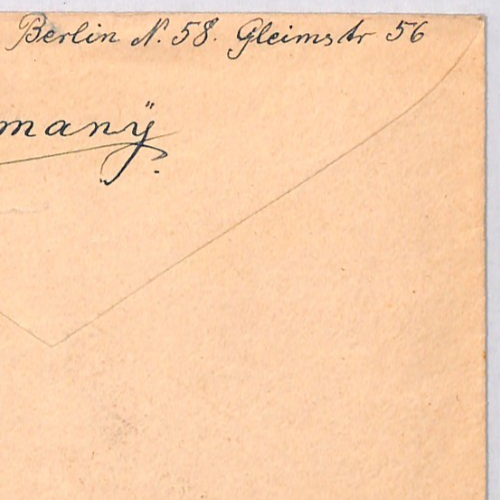 Berlin N. 58. Gleimstr 56
manÿ.